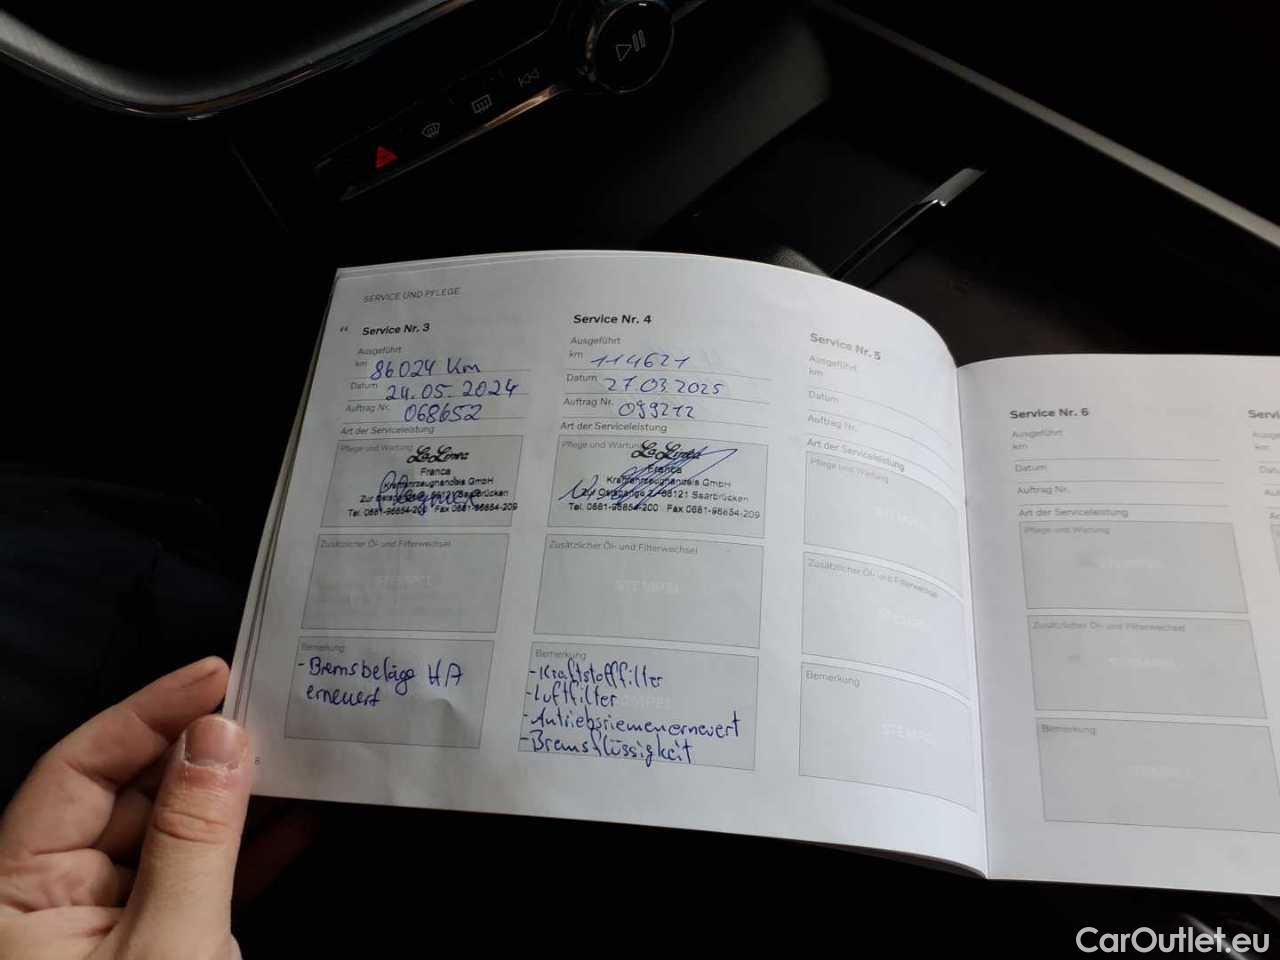 SERVICE UND PFLEGE
“ Service Nr. 3
Ausgeführt
km 86024 Km
Datum 24.05.2024
Auftrag Nr. 068652
Art der Serviceleistung
Pflege und Wartung
Franca
Kraftfahrzeughandels GmbH
66121 Saarbrücken
Tel. 0681-96654-200 Fax 0681-96654-209
Zusätzlicher Öl- und Filterwechsel
STEMPEL
Bemerkung
- Bremsbeläge HA
erneuert
8
Service Nr. 4
Ausgeführt
km 114621
Datum 27.03.2025
Auftrag Nr. 099212
Art der Serviceleistung
Pflege und Wartung
Franca
Kraftfahrzeughandels GmbH
66121 Saarbrücken
Tel. 0681-96654-200 Fax 0681-96654-209
Zusätzlicher Öl- und Filterwechsel
STEMPEL
Bemerkung
- Kraftstofffilter
- Luftfilter
- Antriebsriemen erneuert
- Bremsflüssigkeit
Service Nr. 5
Ausgeführt
km
Datum
Auftrag Nr.
Art der Serviceleistung
Pflege und Wartung
STEMPEL
Zusätzlicher Öl- und Filterwechsel
STEMPEL
Bemerkung
STEMPEL
Service Nr. 6
Ausgeführt
km
Datum
Auftrag Nr.
Art der Serviceleistung
Pflege und Wartung
STEMPEL
Zusätzlicher Öl- und Filterwechsel
STEMPEL
Bemerkung
STEMPEL
CarOutlet.eu